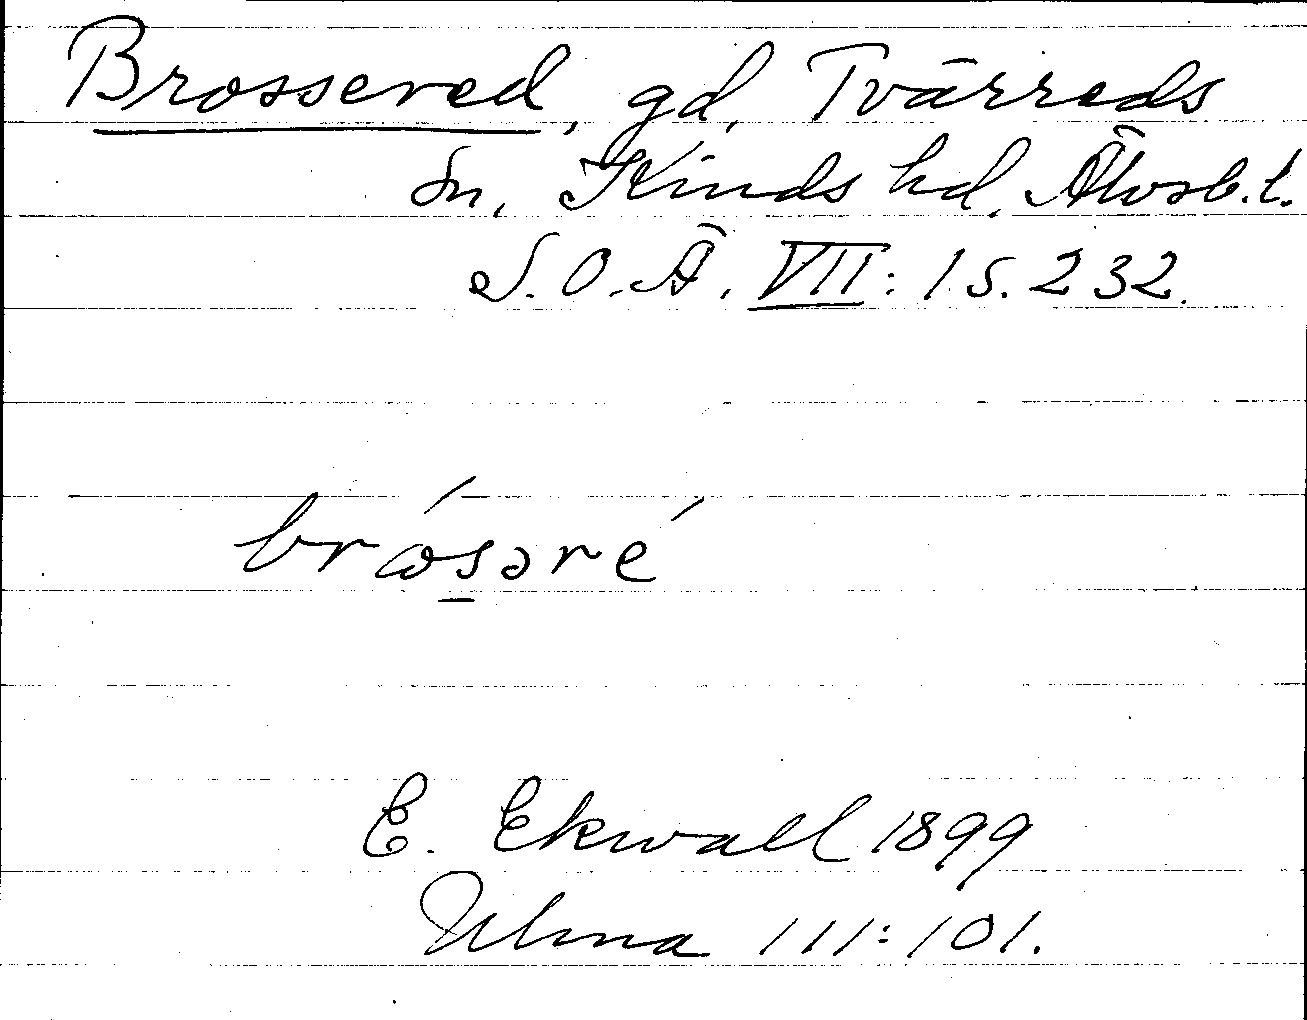 Brossered, gd, Tvärreds
sn, Kinds hd, Älvsb.l.
S.O.Ä. VII: 1 s. 232.
brɷ́s̲əré
E. Ekwall 1899
Ulma 111:101.